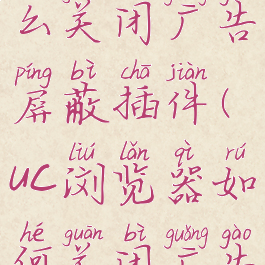 么关闭广告
píng bì chā jiàn
屏蔽插件(
liú lǎn qì rú
UC浏览器如
hé guān bì guǎng gào
何关闭广告